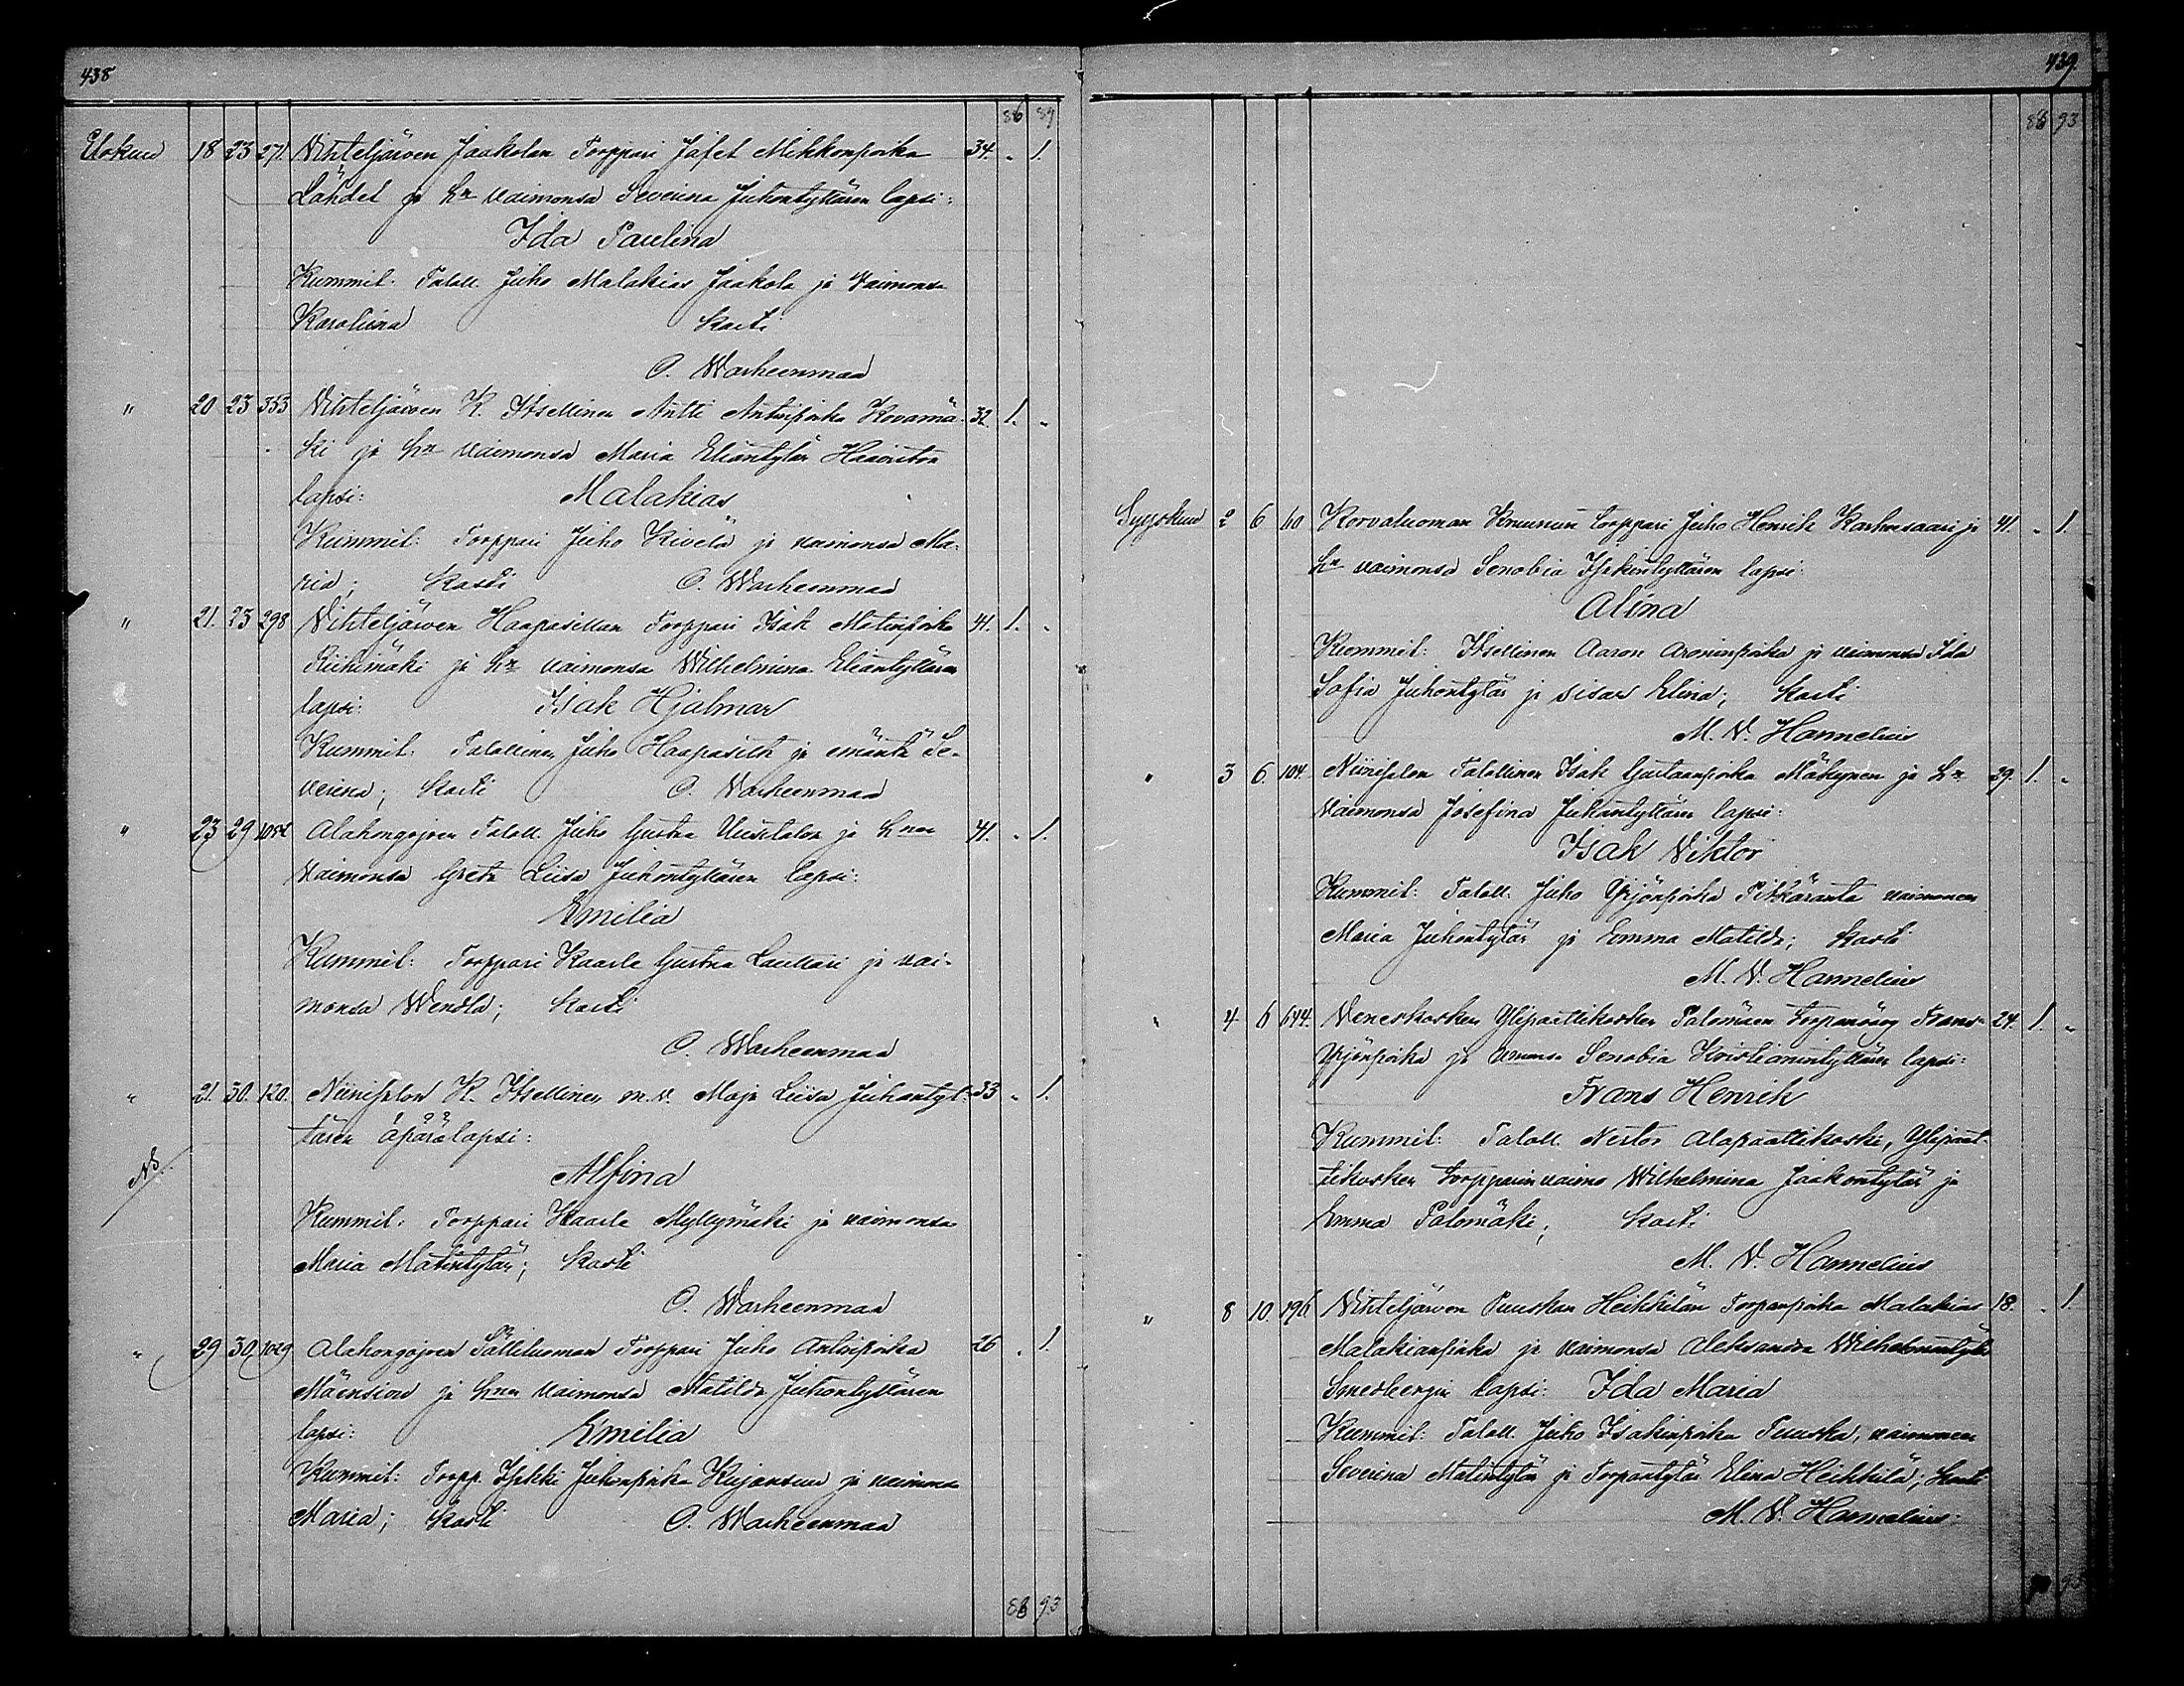 438
86 89
Elokuu 18 23 271. Vihteljärven Jaakolan Torppari Jafet Mikkonpoika 34. „ 1.
Lähdet ja hn vaimonsa Severina Juhontyttären lapsi:
Ida Paulina
Kummit: Taloll. Juho Malakias Jaakola ja Vaimonsa
Karoliina kasti
O. Warheenmaa
„ 20 23 353 Vihteljärven K. Itsellinen Antti Antinpoika Kovamä- 32. 1. „
ki ja hn vaimonsa Maria Eliantytär Haaviston
lapsi: Malakias
Kummit: Torppari Juho Kivelä ja vaimonsa Ma-
ria; kasti O. Warheenmaa
„ 21. 23 298 Vihteljärven Haapasillan Torppari Isak Matinpoika 41. 1. „
Riihimäki ja hn vaimonsa Wilhelmina Eliantyttären
lapsi: Isak Hjalmar
Kummit: Talollinen Juho Haapasilta ja emäntä Se-
verina; kasti O. Warheenmaa
„ 23 29 1054 Alahongojoen Taloll. Juho Gustaa Uusitalon ja hnen 41. „ 1.
vaimonsa Greta Liisa Juhontyttären lapsi:
Emilia
Kummit: Torppari Kaarle Gustaa Laullari ja vai-
monsa Wendla; kasti
O. Warheenmaa
„ 21. 30. 120. Niinisalon K. Itsellinen m. v. Maja Liisa Juhantyt- 33 „ 1.
tären äpärälapsi:
NB.
Alfina
Kummit: Torppari Kaarle Myllymäki ja vaimonsa
Maria Matintytär; kasti
O. Warheenmaa
„ 29 30 1029 Alahongojoen Sälliluoman Torppari Juho Antinpoika 26 „ 1.
Mäensivu ja hnen vaimonsa Matilda Juhontyttären
lapsi: Emilia
Kummit: Torpp. Iisakki Juhanpoika Kujansuu ja vaimonsa
Maria; kasti O. Warheenmaa
86 93
439.
86 93
Syyskuu 2 6 60 Korvaluoman Kruunun torppari Juho Henrik Karhusaari ja 41. „ 1.
hn vaimonsa Senobia Iisakintyttären lapsi:
Alina
Kummit: Itsellinen Aaron Aroninpoika ja vaimonsa Ida
Sofia Juhontytär ja sisar Elina; kasti
M. V. Hannelius
„ 3 6. 104. Niinisalon Talollinen Isak Gustaanpoika Mäkynen ja hn 39. 1. „
vaimonsa Josefina Juhantyttären lapsi:
Isak Viktor
Kummit: Taloll. Juho Yrjönpoika Pitkäranta vaimoneen
Maria Juhontytär ja Emma Matilda; kasti
M. V. Hannelius
„ 4 6 644. Veneskosken Ylipaattikosken Palomäen torpanväy Frans 24. 1. „
Yrjönpoika ja vmonsa Senobia Kristianintyttären lapsi:
Frans Henrik
Kummit: Taloll. Nestor Alapaattikoski, Ylipaat-
tikosken torpparinvaimo Wilhelmina Jaakontytär ja
Emma Palomäki; kasti
M. V. Hannelius
„ 8 10. 196 Vihteljärven Puuskan Heikkilän Torpanpoika Malakias 18. „ 1.
Malakianpoika ja vaimonsa Aleksandra
lapsi: Ida Maria
Kummit: Taloll. Juho Isakinpoika Puuska, vaimoneen
Severina Matintytär ja Torpantytär Elina Heikkilä; kasti
M. V. Hannelius.
93